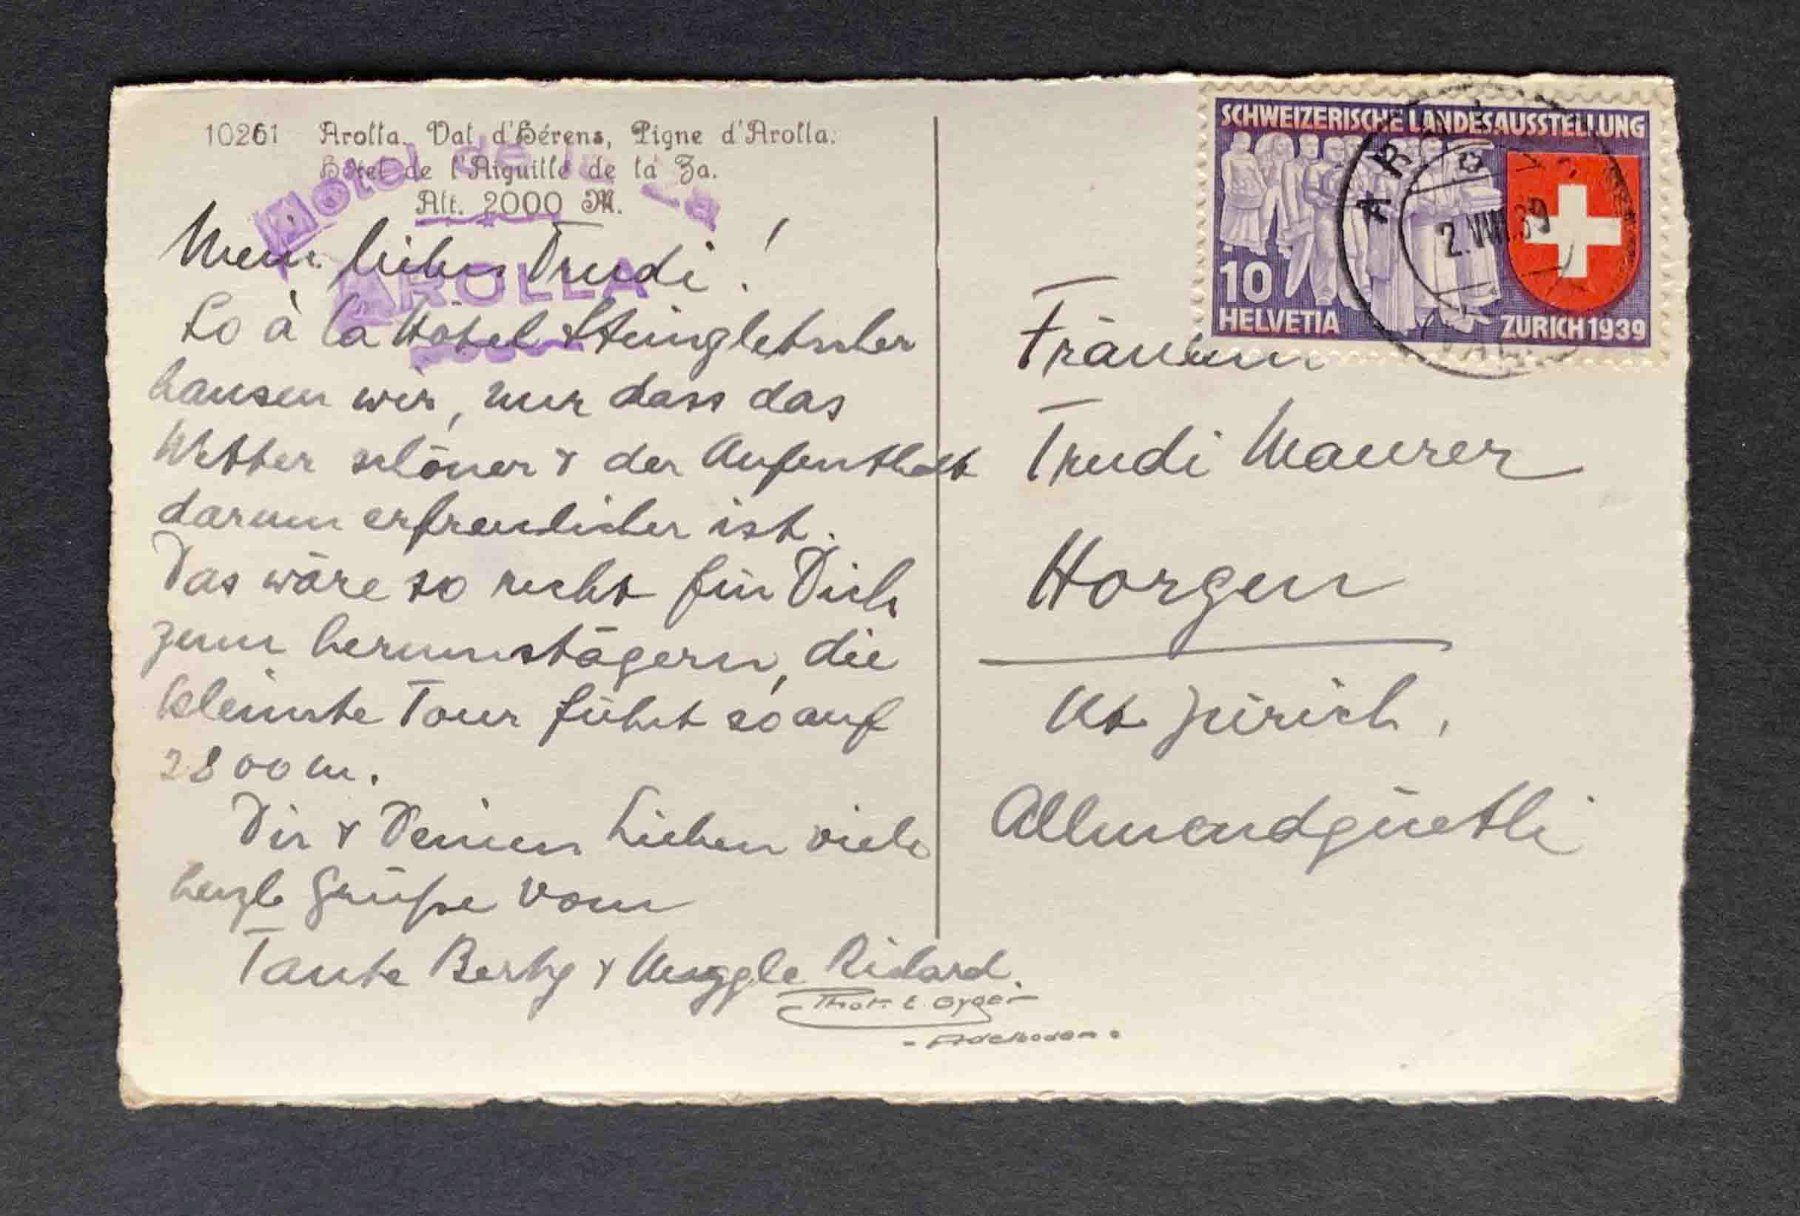 10261 Arolla. Val d'Hérens, Pigne d'Arolla.
Hôtel de l'Aiguille de la Za.
Alt. 2000 M.
Hotel de la Za
AROLLA
Mein liebes Trudi!
So à la Hôtel Steingletscher
hausen wir, nur dass das
Wetter schöner & der Aufenthalt
darum erfreulicher ist.
Das wäre so recht für Dich
zum herumstägern, die
kleinste Tour führt so auf
2800 m.
Dir & Deinen Lieben viele
herzl. Grüße vom
Tante Berty & Richard.
Phot. E. Gyger
- Adelboden -
SCHWEIZERISCHE LANDESAUSSTELLUNG
10
HELVETIA
ZÜRICH 1939
2.VIII.39
Fräulein
Trudi Maurer
Horgen
Kt Zürich,
Allmendgüetli